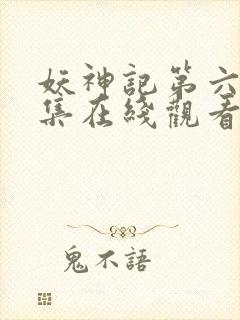 妖神記第六
集在綫觀看
鬼不語